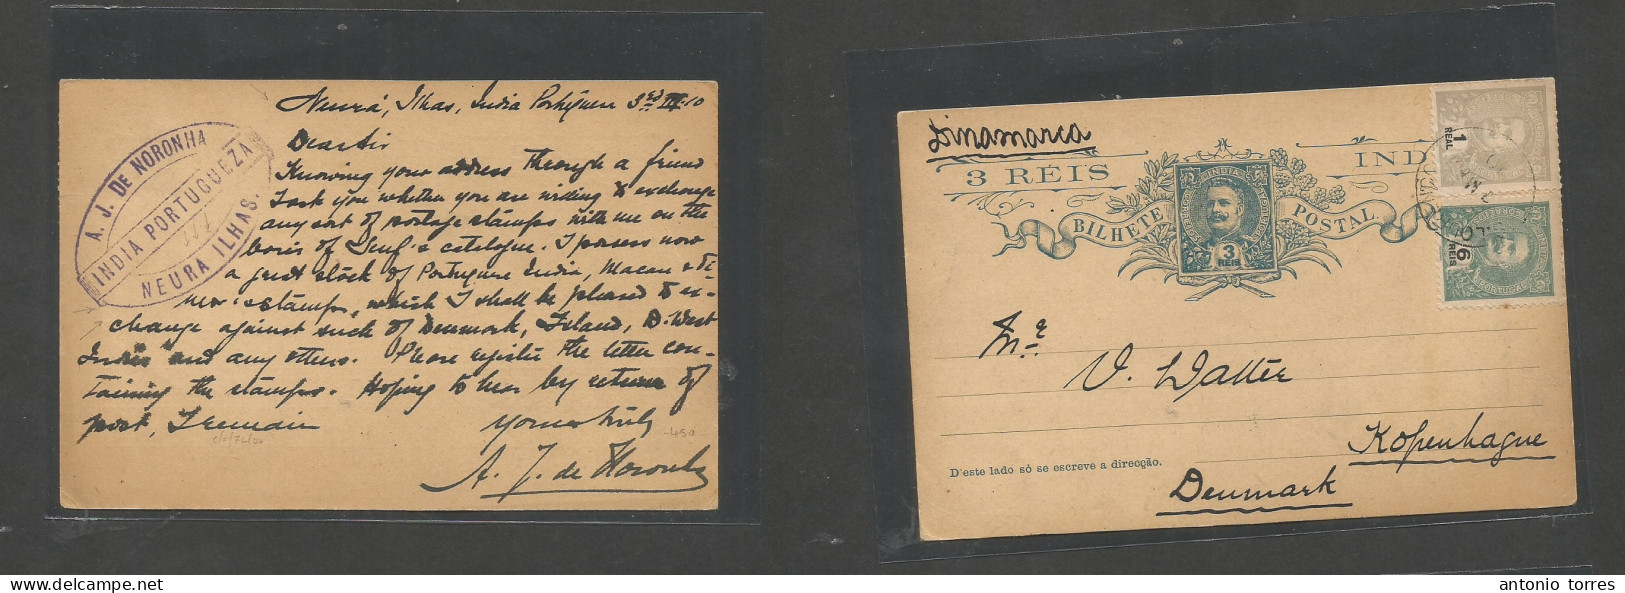 Neurá, Ilhas, India Portuguese 3rd III-10
A. J. DE NORONHA
INDIA PORTUGUEZA
NEURA ILHAS.
Dear Sir
Knowing your address through a friend
I ask you whether you are willing to exchange
any sort of postage stamps with me on the
basis of Senf's catalogue. I possess now
a great stock of Portuguese India, Macau & Ti-
mor stamps, which I shall be pleased to ex-
change against such of Denmark, Island, D. West
Indies and any others. Please register the letter con-
taining the stamps. Hoping to hear by return of
post, I remain
yours truly
A. J. de Noronha
450
Dinamarca
3 RÉIS
IND
BILHETE POSTAL
INDIA
3
RÉIS
1
REAL
6
REIS
PORTUGAL
Mr
V. Watter
Kopenhague
D'este lado só se escreve a direcção.
Denmark
antonio torres